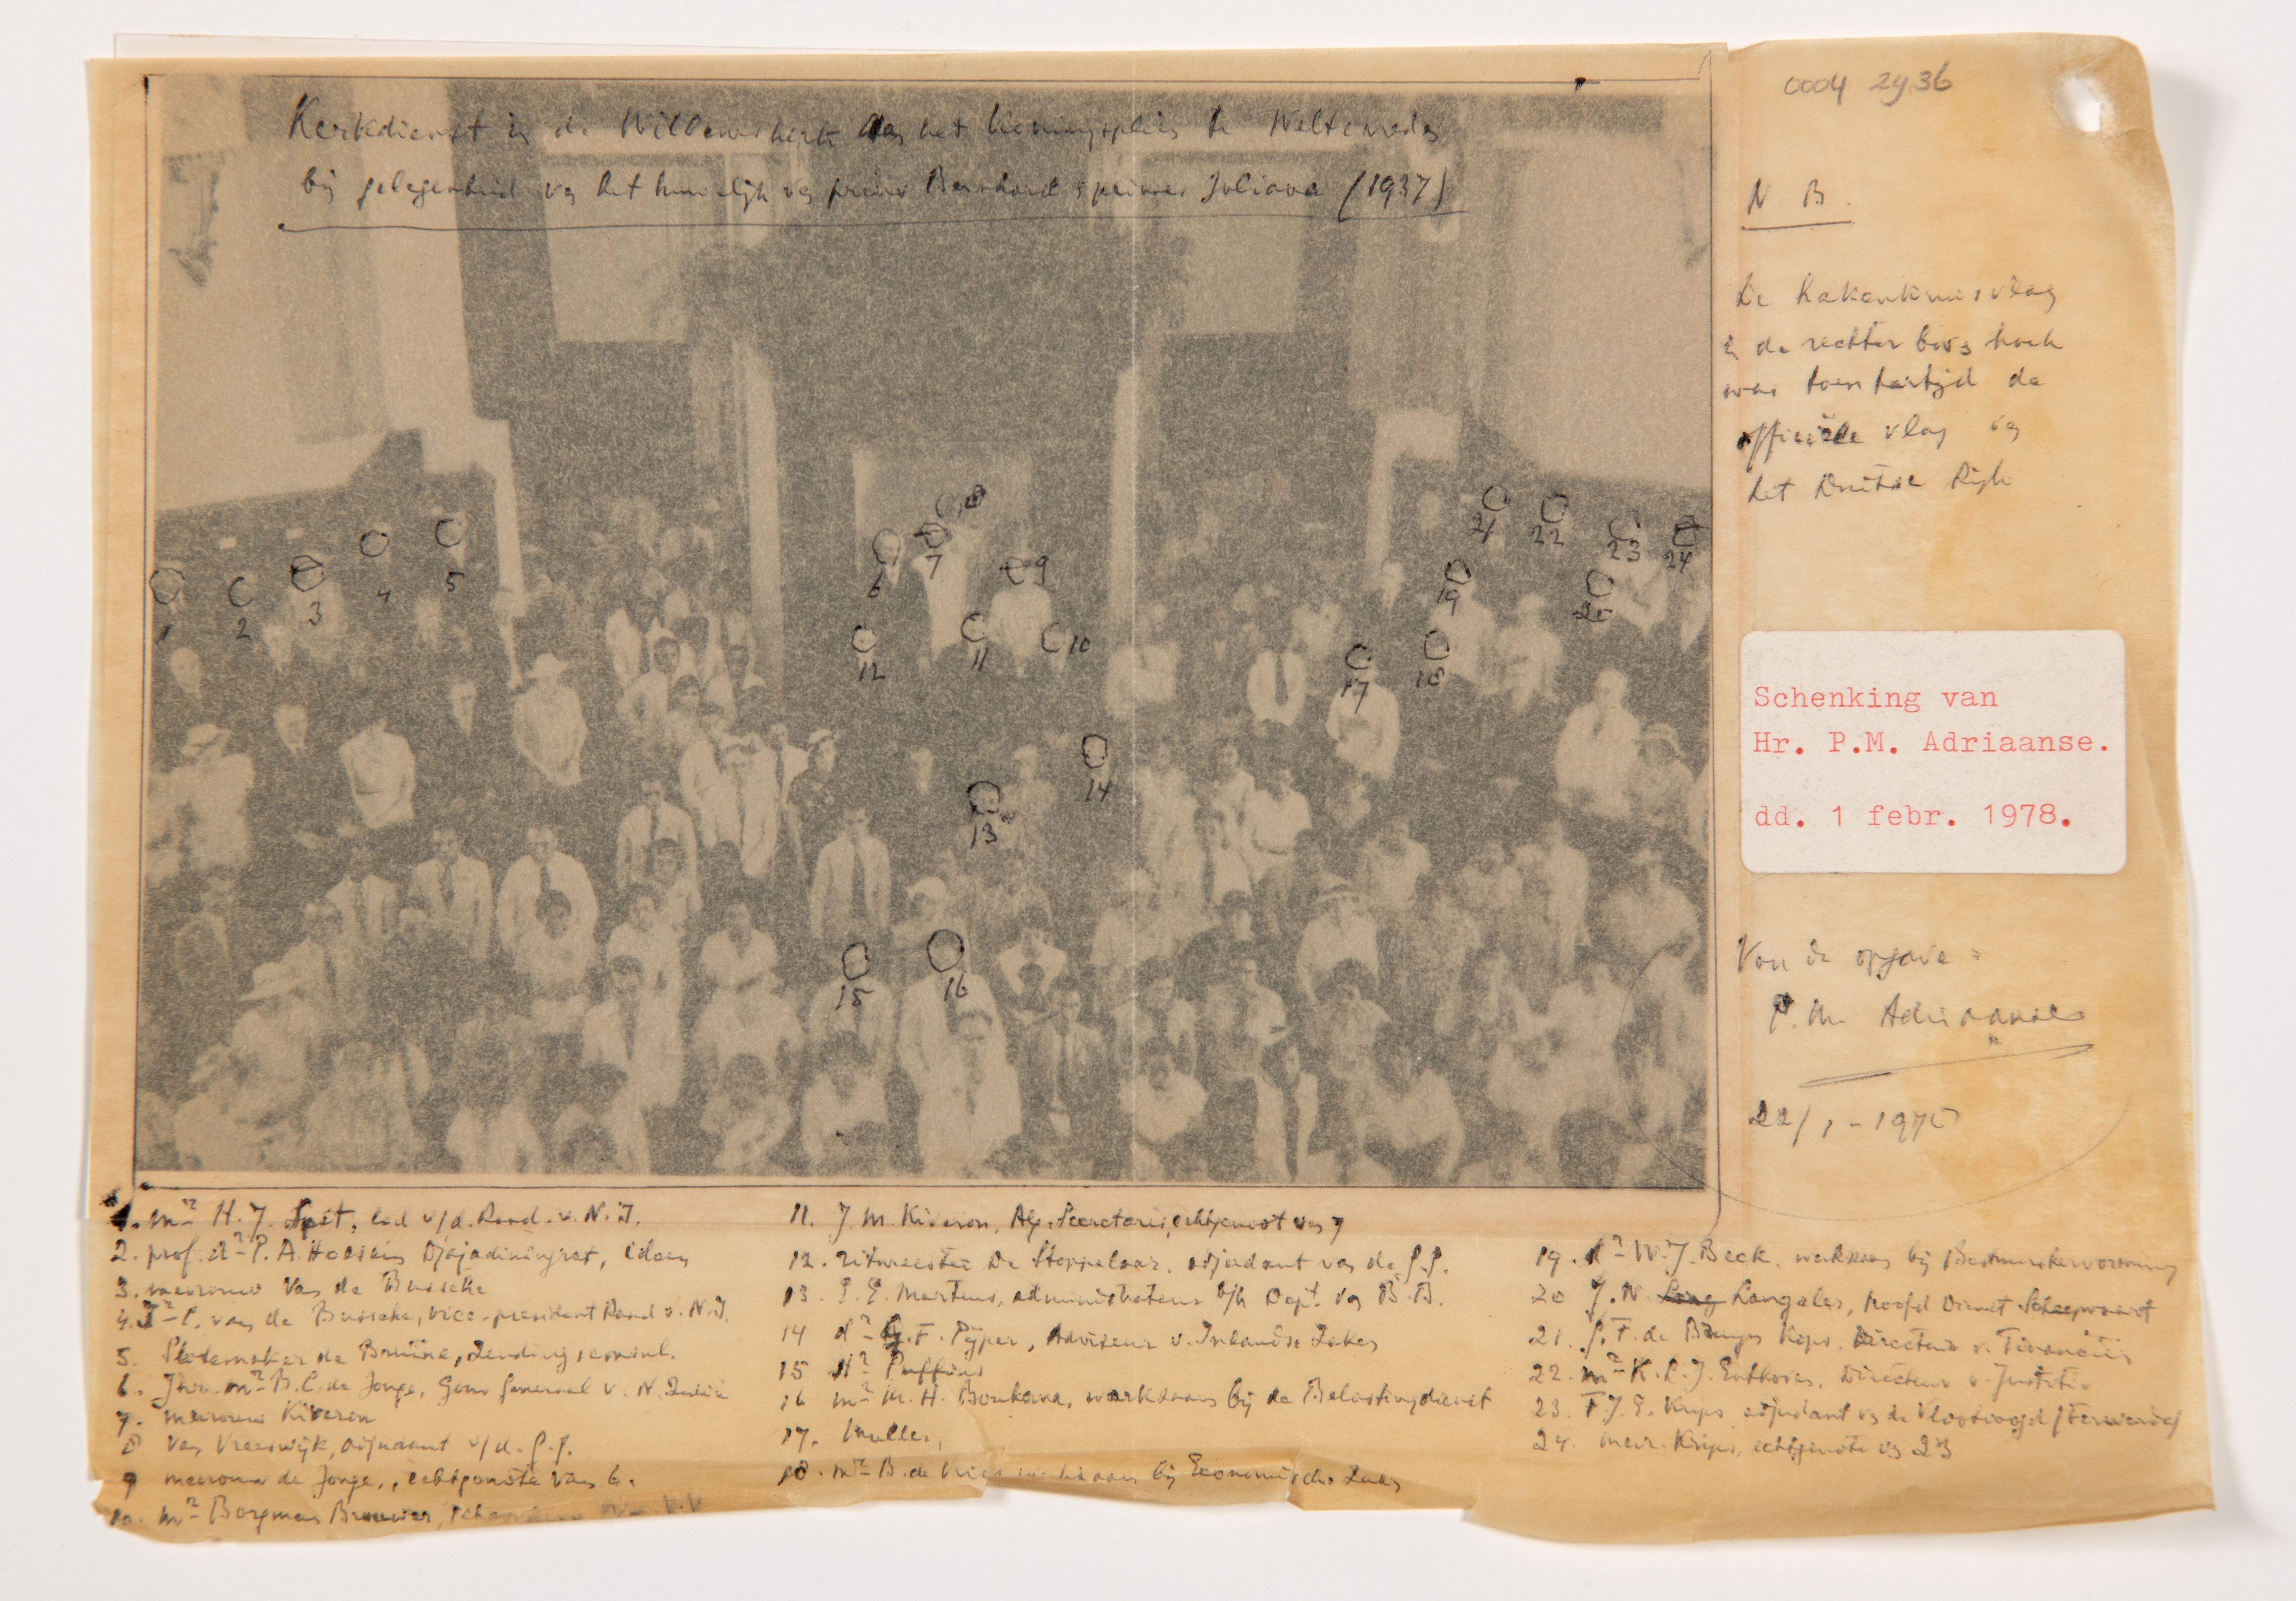 0004 2936
Kerkdienst in de Willemskerk aan het Koningsplein te Weltevreden
bij gelegenheid van het huwelijk van prins Bernhard & prinses Juliana (1937)
N B.
De hakenkruisvlag
in de rechter boven hoek
was toentertijd de
officiële vlag van
het Duitse Rijk
1
2
3
4
5
6
7
8
9
10
11
12
13
14
15
16
17
18
19
20
21
22
23
24
Schenking van
Hr. P.M. Adriaanse.
dd. 1 febr. 1978.
Voor de opgave:
P.M. Adriaanse
22/1-197
1. mr H.J. Spit, lid v/d. Raad. v. N.I.
2. prof. dr P.A. Hoesein Djajadiningrat, idem
3. mevrouw van de Bussche
4. Jr C. van de Bussche, vice-president Raad v. N.I.
5. Slotemaker de Bruïne, Zendingsconsul.
6. Jhr. mr B.C. de Jonge, Gouv Generaal v. N. Indië
7. mevrouw Kiveron
8 van Vreeswijk, adjudant v/d. G.G.
9 mevrouw de Jonge, echtgenote van 6.
10. mr Borgman Brouwer,
11. J.M. Kiveron, Alg. Secretaris, echtgenoot van 7
12. ritmeester De Stoppelaar, adjudant van de G.G.
13. E.E. Martens, administrateur b/h Dept. van B.B.
14 dr G.F. Pijper, Adviseur v. Inlandse Zaken
15 dr Puffius
16 mr M.H. Boukema, werkzaam bij de Belastingdienst
17. Muller,
18. mr B. de Vries werkzaam bij Economische Zaken
19. dr W.J. Beck, werkzaam bij Bestuurshervorming
20 J.N. Langeler, hoofd Dienst Scheepvaart
21. G.F. de Bruyn Kops, Directeur v. Financiën
22. mr K.L.J. Enthoven, Directeur v. Justitie
23. F.J.E. Krips, adjudant van de Vlootvoogd
24. mevr. Krips, echtgenote van 23